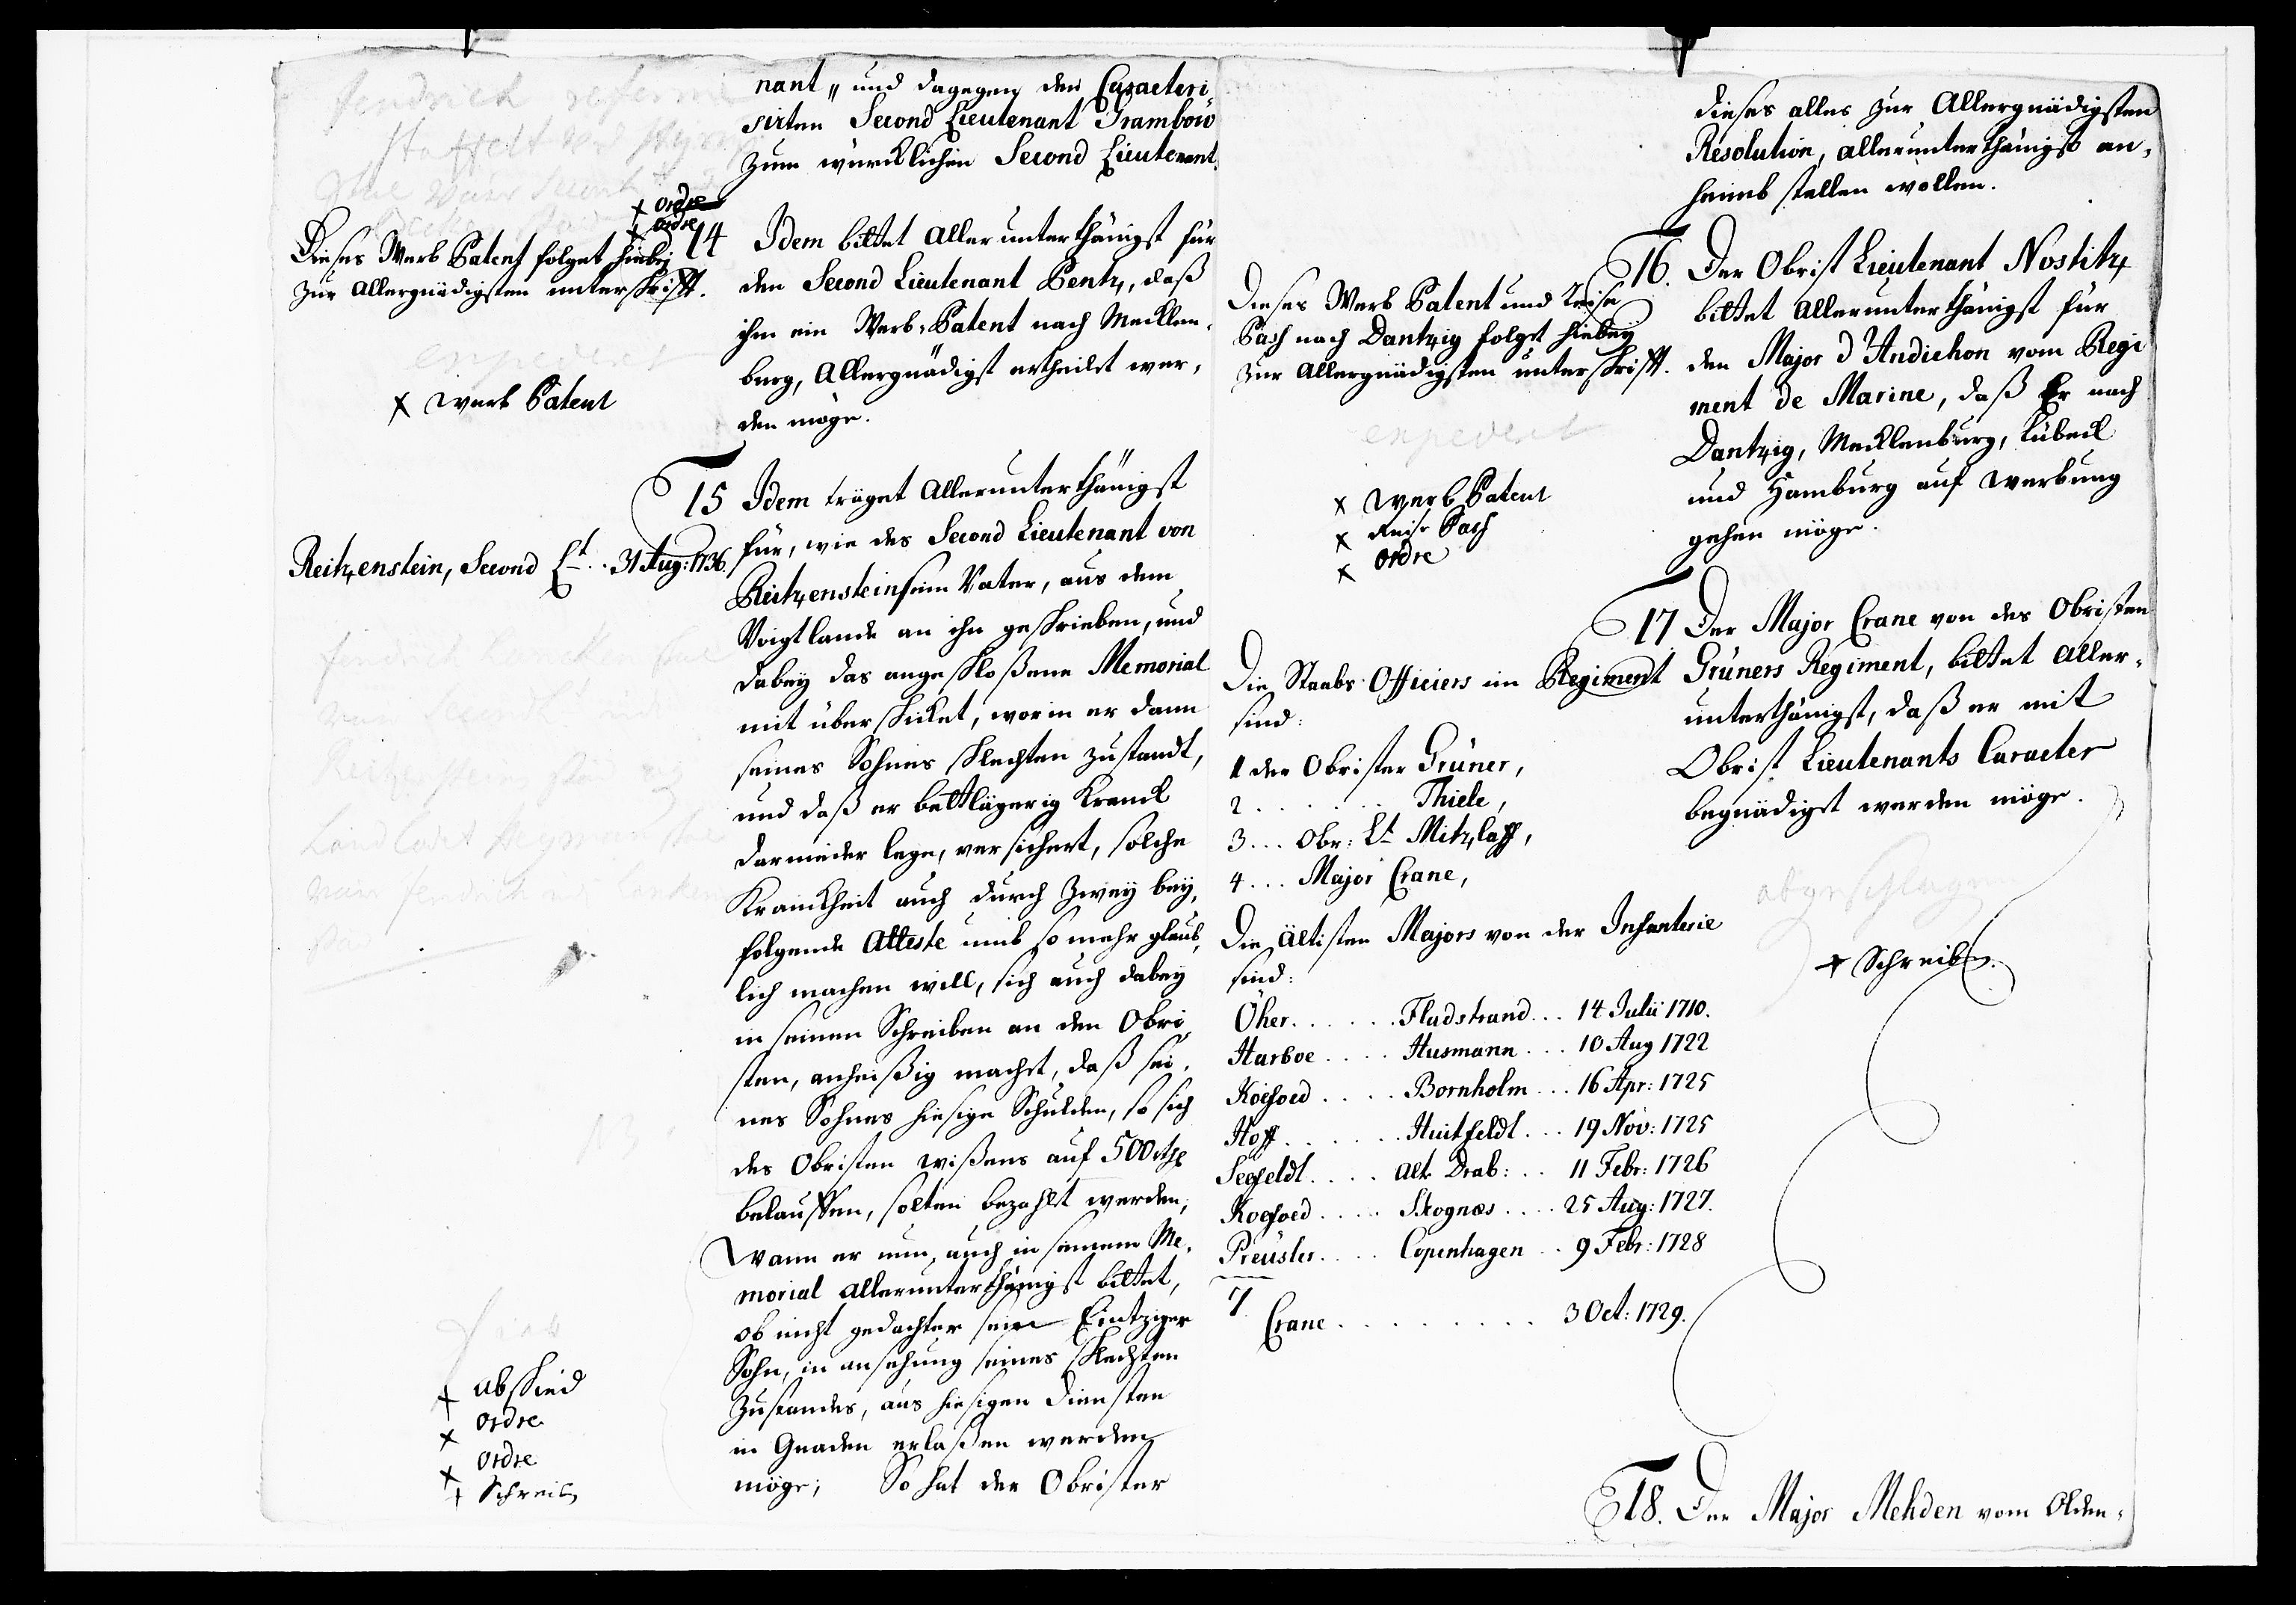 nant„ und dagegen den Caracteri
sirten Second Lieutenant Grambow
zum würcklichen Second Lieutenant.
fendrich
+ ordre
+ ordre
Dieses Werb Patent folget hiebej
zur Allergnädigsten unterschrifft.
expedert
+ Werb Patent
14 Idem bittet Allerunterthänigst für
den Second Lieutenant Pentz, daß
ihm ein Werb-Patent nach Mecklen-
burg, Allergnädigst ertheilet wer-
den möge.
Reitzenstein, Second Lt. . 31 Aug: 1736.
15 Idem träget Allerunterthänigst
für, wie des Second Lieutenant von
Reitzenstein sein Vater, aus dem
Voigtlande an ihn geschrieben, und
dabey das angeschloßene Memorial
mit überschicket, worin er dann
seines Sohnes schlechten zustandt,
und daß er bettlägerig kranck
darnieder lege, versichert, solche
Kranckheit auch durch zwey bey-
folgende Atteste umb so mehr glaub-
lich machen will, sich auch dabey
in seinen Schreiben an den Obri-
sten, anheißig macht, daß sei-
nes Sohnes hiesige Schulden, so sich
des Obristen wißens auf 500 rthl
belauffen, solten bezahlt werden,
Wann er nun auch in seinem Me-
morial allerunterthänigst bittet,
ob nicht gedachter sein Eintziger
Sohn, in ansehung seines schlechten
Zustandes, aus hiesigen Diensten
in Gnaden erlaßen werden
möge; So hat der Obrister
+ Abschied
+ ordre
+ ordre
+ Schreib
dieses alles zur Allergnädigsten
Resolution, allerunterthänigst an-
heimb stellen wollen.
Dieses Werb Patent und Reise
Pass nach Dantzig folget hiebej
zur Allergnädigsten unterschrifft.
expedert
+ Werb Patent
+ Reise Pass
+ ordre
16. Der Obrist Lieutenant Nostitz
bittet Allerunterthänigst für
den Major d'Andichon vom Regi
ment de Marine, daß Er nach
Dantzig, Mecklenburg, Lübeck
und Hamburg auf Werbung
gehen möge.
17 Der Major Crane von des Obristen
Grüners Regiment, bittet Aller-
unterthänigst, daß er mit
Obrist Lieutenants Caracter
begnädiget werden möge.
abgeschlagen
+ Schreiben.
Die Staabs Officiers im Regiment
sind:
1 der Obrister Grüner,
2 . . . . . . . Thiele,
3 . . . Obr: Lt Mitzlaff,
4 . . . Major Crane,
Die ältisten Majors von der Infanterie
sind:
Öher . . . . . . Fladstrand . . . 14 Julii 1710.
Harboe . . . . Husmann . . . 10 Aug 1722
Koefoed . . . . Bornholm . . . 16 Apr: 1725
Hoff . . . . . . Huitfeldt . . . 19 Nov: 1725
Seefeldt . . . . Alt Drab: . . 11 Febr: 1726
Koefoed . . . . Skognæs . . . . 25 Aug: 1727.
Preusler . . . . Copenhagen . . 9 Febr: 1728
7.
Crane . . . . . . . . . 3 Oct: 1729.
18. Der Major Mehden vom Olden-